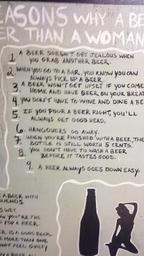 EASONS WHY A BE
ER THAN A WOMAN
1. A BEER DOESN'T GET JEALOUS WHEN
YOU GRAB ANOTHER BEER.
2. WHEN YOU GO TO A BAR, YOU KNOW YOU CAN
ALWAYS PICK UP A BEER.
3. A BEER WON'T GET UPSET IF YOU COME
HOME AND HAVE BEER ON YOUR BREAT
4. YOU DON'T HAVE TO WINE AND DINE A BE
5. IF YOU POUR A BEER RIGHT, YOU'LL
ALWAYS GET GOOD HEAD.
6. HANGOVERS GO AWAY.
7. WHEN YOU'RE FINISHED WITH A BEER, THE
BOTTLE IS STILL WORTH 5 CENTS.
8. YOU DON'T HAVE TO WASH A BEER
BEFORE IT TASTES GOOD.
9. A BEER ALWAYS GOES DOWN EASY.
A BEER WITH
YOU'RE THE
POP A BEER.
IS A GOOD BEER.
MORE THAN ONE
NOT FEEL GUILTY
A BEER